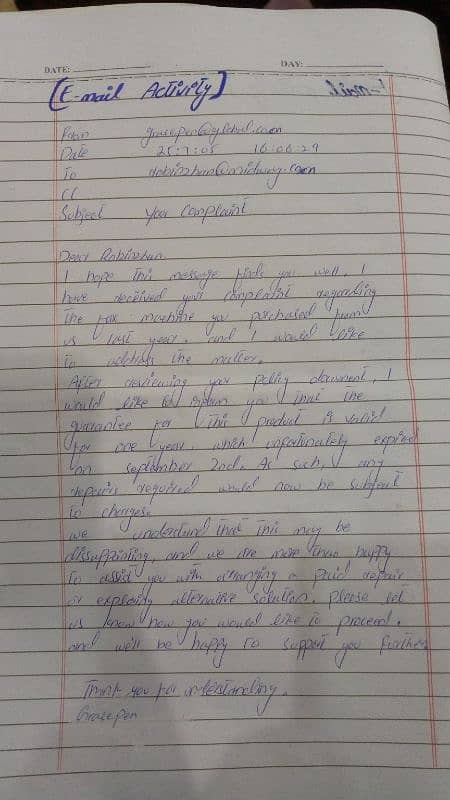 DATE: DAY:
(E-mail Activity)
From gracepen@global.com
Date 25:7:05 16:06:29
To robinzhan@midway.com
CC
Subject your Complaint
Dear Robinzhan
I hope this message finds you well. I
have received your complaint regarding
the fax machine you purchased from
us last year. and I would like
to address the matter.
After reviewing your policy document, I
would like to inform you that the
guarantee for this product is valid
for one year. which unfortunately expired
on september 2nd. As such, any
repairs required would now be subject
to charges.
we understand that this may be
dissappinting, and we are more than happy
to assist you with arranging a paid repair
or exploring alternative solution. please let
us know how you would like to proceed.
and we'll be happy to support you further
Thank you for understanding.
Gracepen